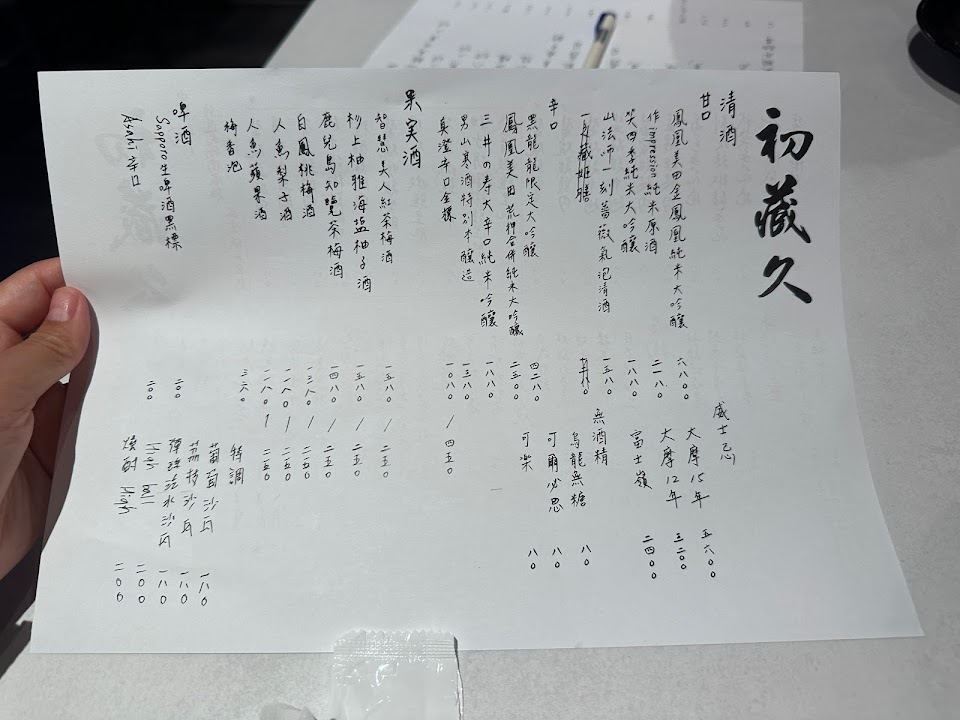 初藏久
清酒
甘口
鳳凰美田金鳳凰純米大吟釀 六八〇〇
作impression純米原酒 二一八〇
笑四季純米大吟釀 一八八〇
山法師一刻薔薇氣泡清酒 一五八〇
辛口
黑龍龍限定大吟釀 四二八〇
鳳凰美田荒押合併純米大吟釀
三井の寿大辛口純米吟釀 一八八〇
男山寒酒特別本釀造 一三八〇
真澄辛口金撰 一〇八〇/四五〇
果実酒
智慧美人紅茶梅酒 一五八〇/二五〇
杉上柚雅海塩柚子酒 一五八〇/二五〇
鹿兒島知覽茶梅酒 一四八〇/二五〇
白鳳桃梅酒 一三八〇/二五〇
人魚梨子酒 一二八〇/二五〇
人魚蘋果酒 一二八〇/二五〇
梅香泡 三六〇
啤酒
Sapporo生啤酒黑標 二〇〇
Asahi 辛口 二〇〇
威士忌
大摩15年 五六〇〇
大摩12年 三二〇〇
富士嶺 二四〇〇
無酒精
烏龍無糖 八〇
可爾必思 八〇
可樂 八〇
特調
葡萄沙瓦 一八〇
荔枝沙瓦 一八〇
彈珠汽水沙瓦 一八〇
High ball 二〇〇
燒酎 High 二〇〇